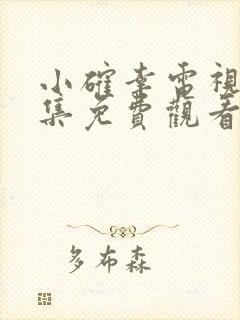 小確幸電視
集免費觀看
多布森